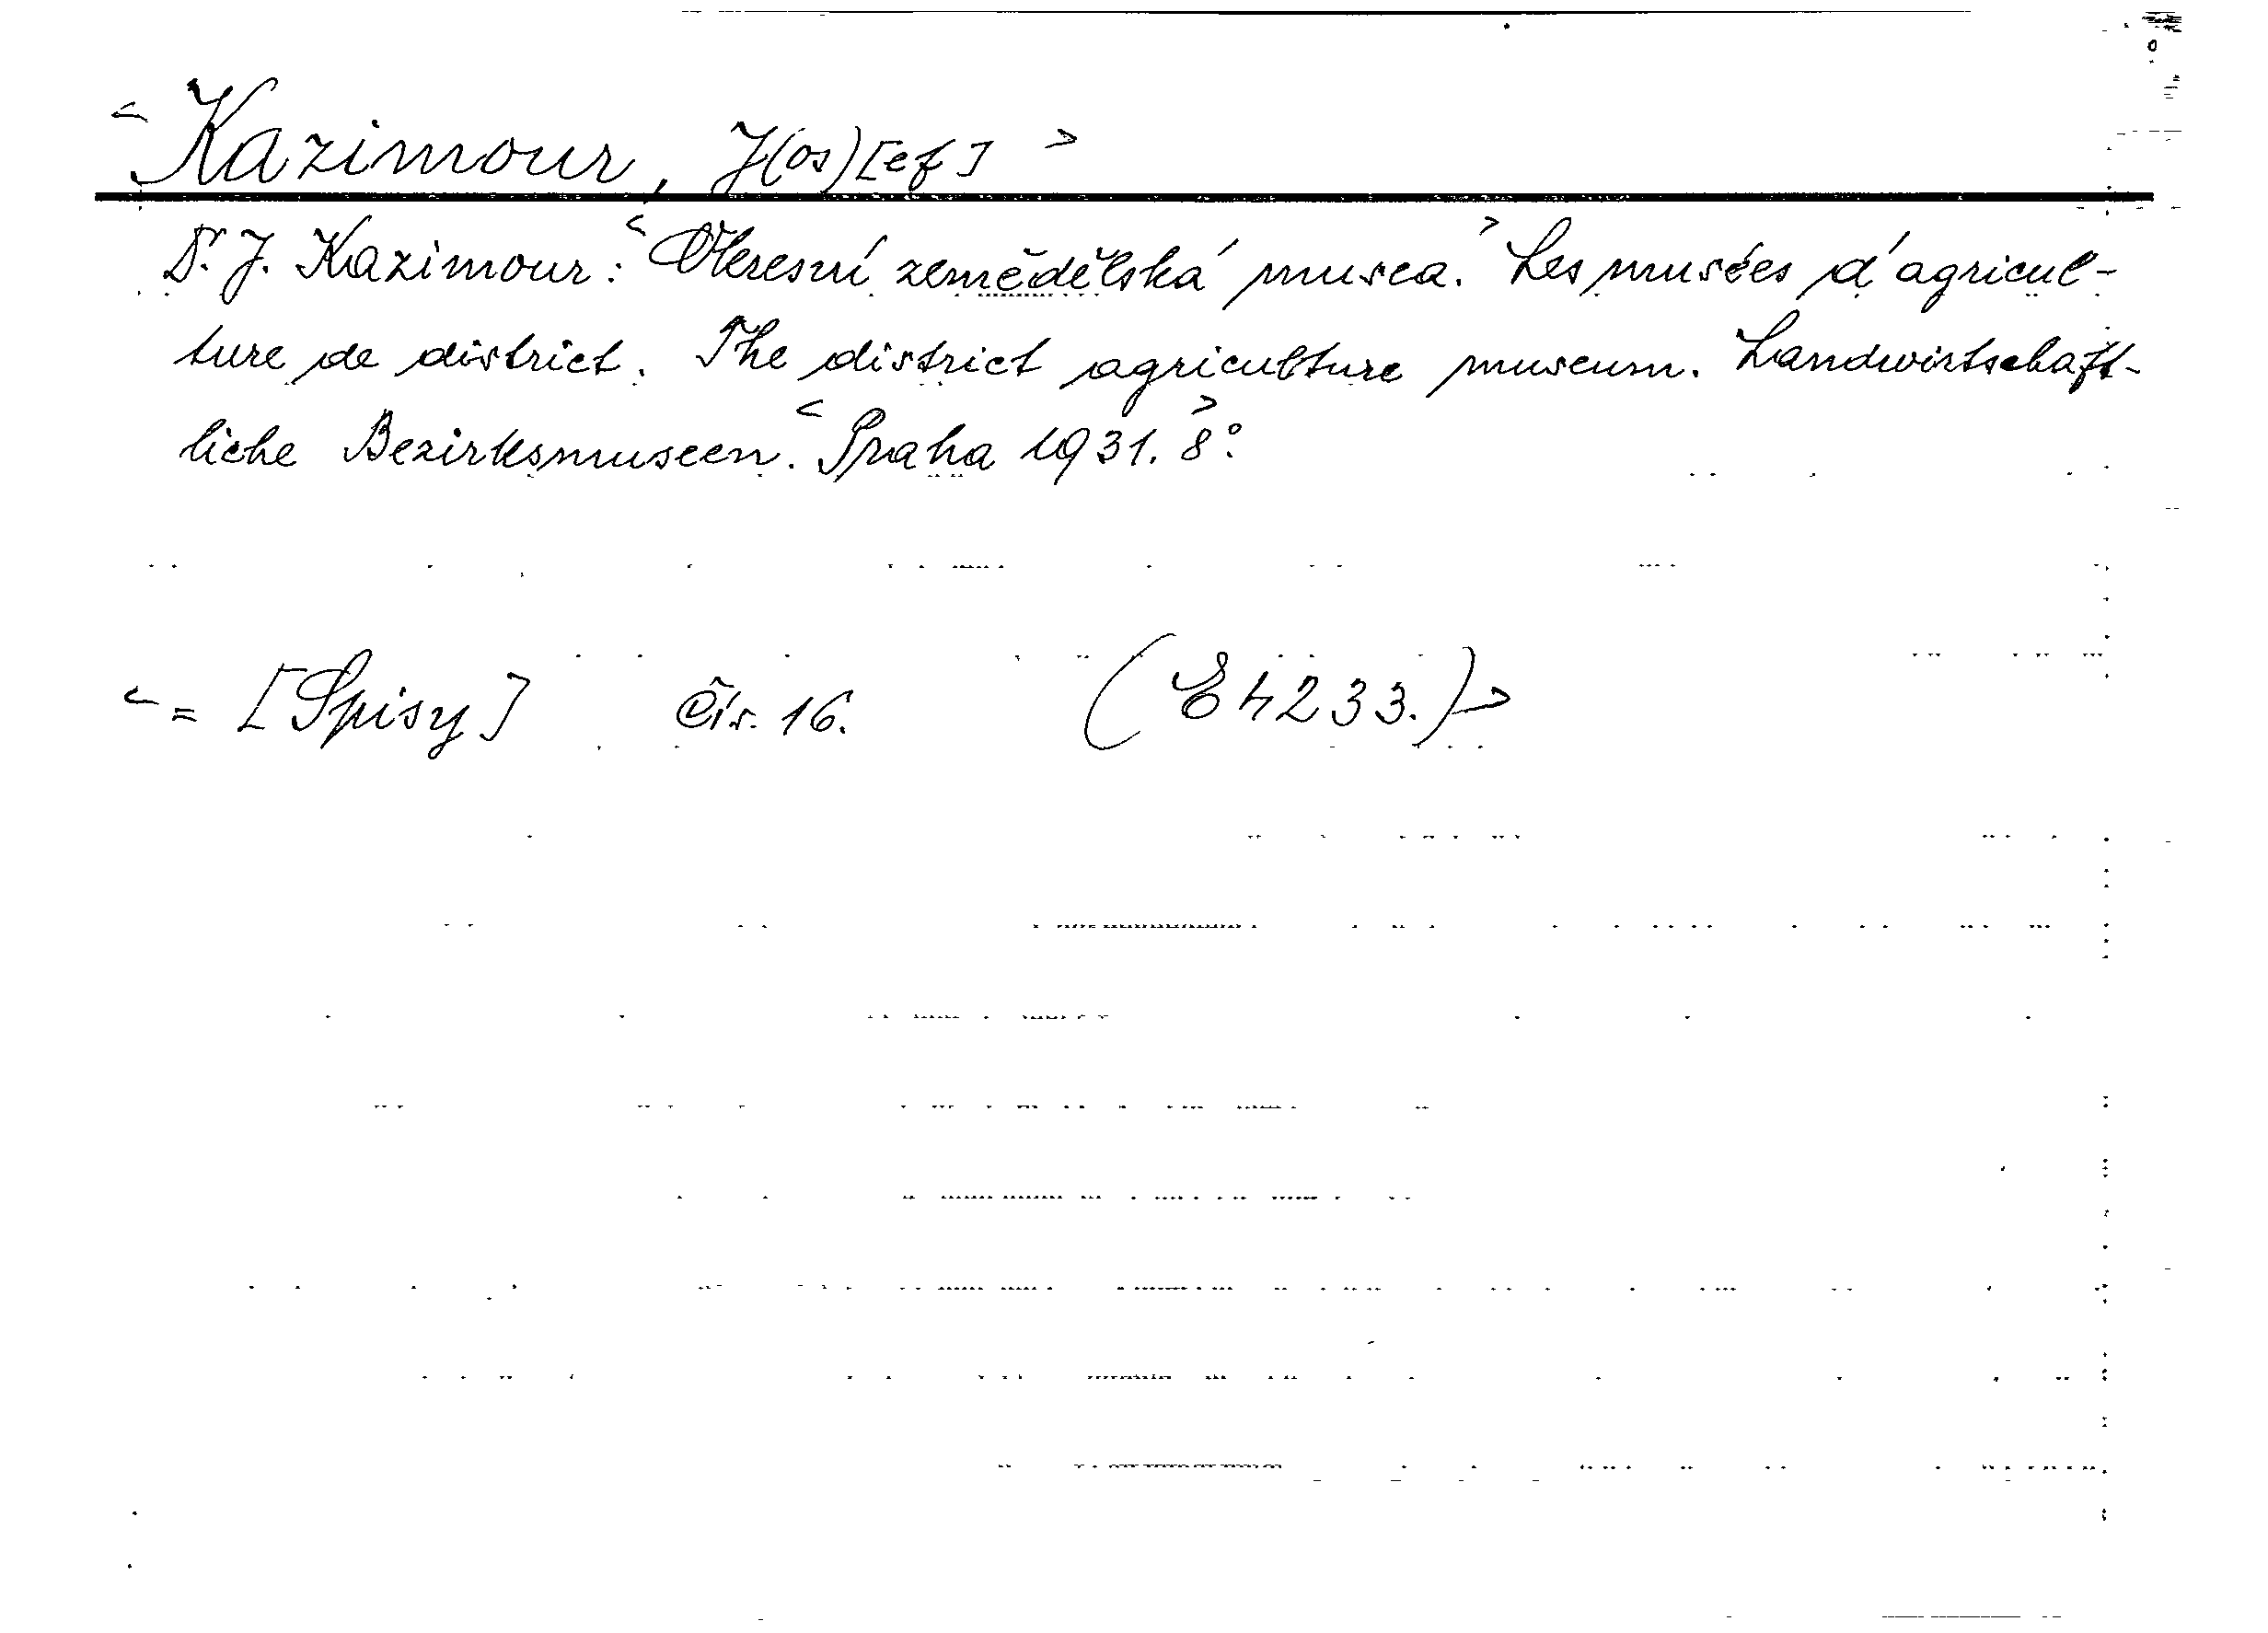 <Kazimour, J(os)[ef]>
Dr. J. Kazimour: <Okresní zemědělská musea.> Les musées d'agricul-
ture de district. The district agriculture museum. Landwirtschaft-
liche Bezirksmuseen. <Praha 1931.> 8°.
<= [Spisy] čís. 16. (E4233.)>